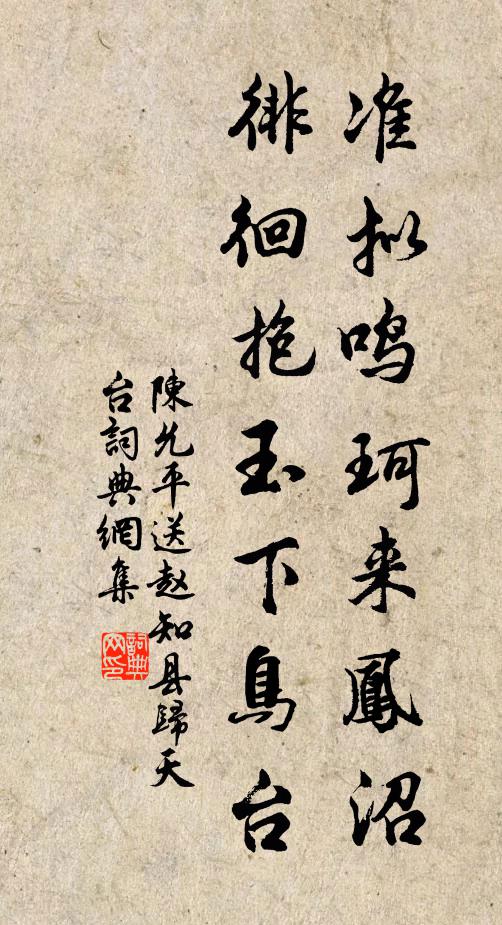 准拟鸣珂来鳳沼
徘徊抱玉下鳥台
陳允平送赵知县歸天
台詞典網集
詞典网印